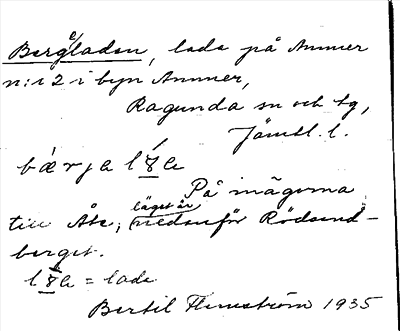 Bergeladan, lada på Ammer
n:r 2 i byn Ammer,
Ragunda sn och tg,
Jämtl. l.
På mägerna
till Åke; läget är nedanför Rödsand-
berget.
= lada
Bertil Flemström 1935